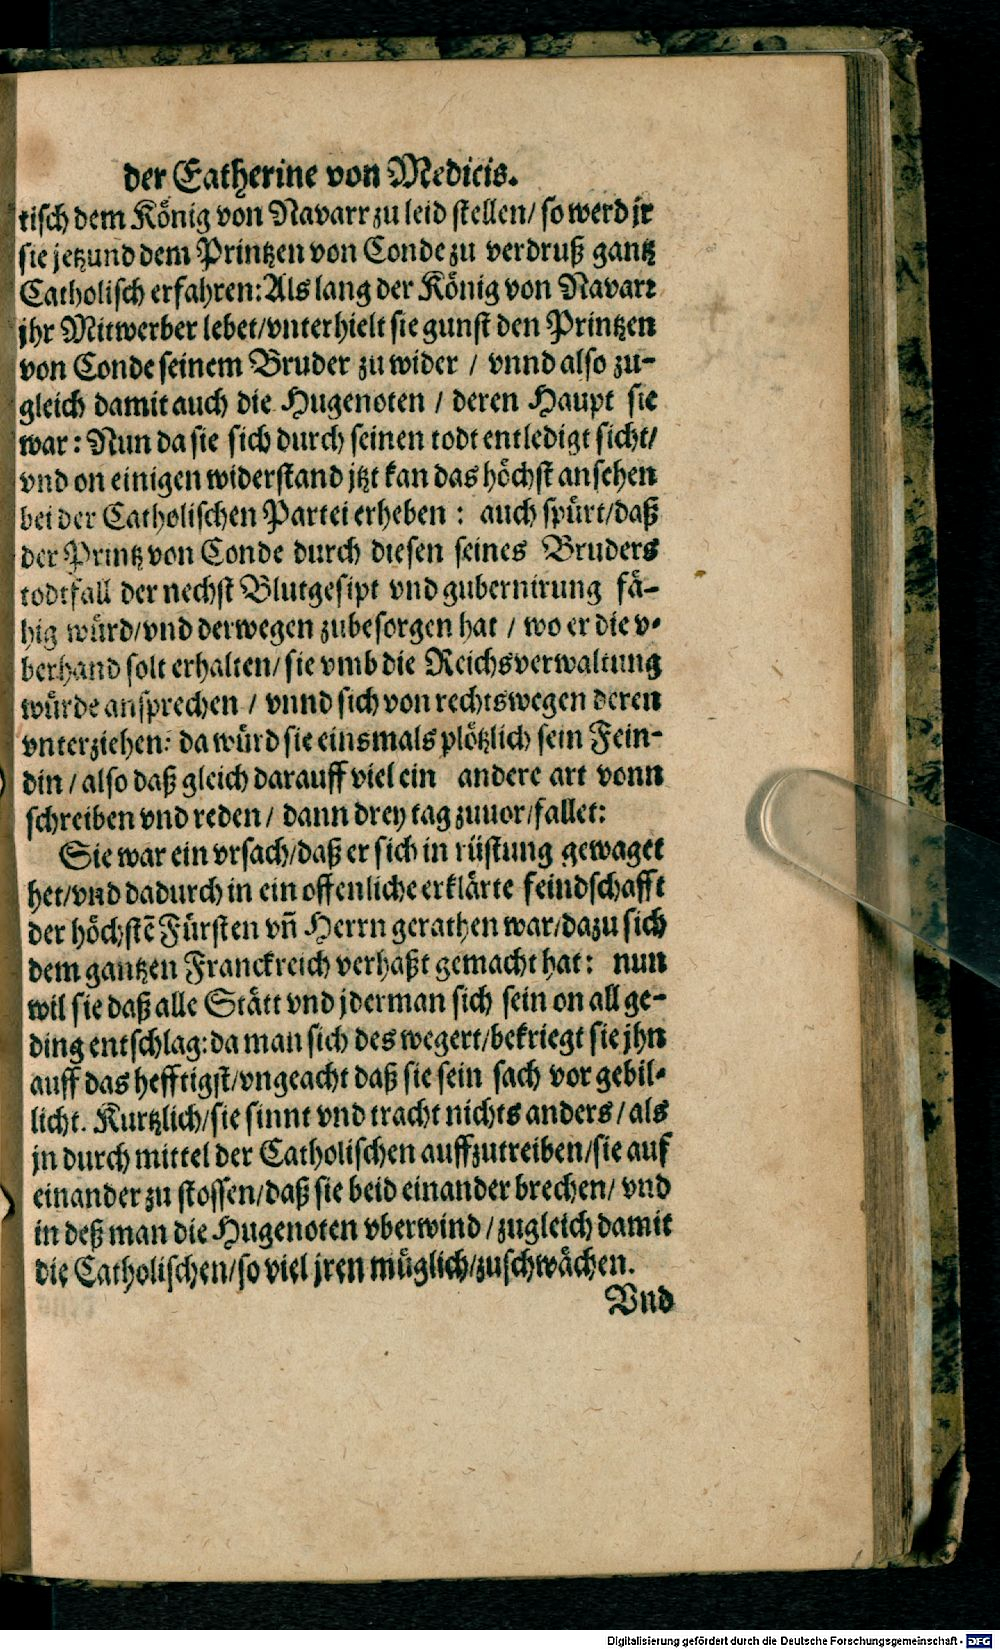 der Catherine von Medicis.
tisch dem König von Navarr zu leid stellen/ so werd jr
sie jetzund dem Printzen von Conde zu verdruß gantz
Catholisch erfahren: Als lang der König von Navarr
jhr Mitwerber lebet/vnterhielt sie gunst den Printzen
von Conde seinem Bruder zu wider / vnnd also zu-
gleich damit auch die Hugenoten / deren Haupt sie
war: Nun da sie sich durch seinen todt entledigt sicht/
vnd on einigen widerstand jtzt kan das höchst ansehen
bei der Catholischen Partei erheben : auch spürt/daß
der Printz von Conde durch diesen seines Bruders
todtfall der nechst Blutgesipt vnd gubernirung fä-
hig würd/vnd derwegen zubesorgen hat / wo er die v-
berhand solt erhalten/ sie vmb die Reichsverwaltung
würde ansprechen / vnnd sich von rechtswegen deren
vnterziehen: da würd sie einsmals plötzlich sein Fein-
din / also daß gleich darauff viel ein andere art vonn
schreiben vnd reden / dann drey tag zuuor/fallet:
Sie war ein vrsach/daß er sich in rüstung gewaget
het/vnd dadurch in ein offenliche erklärte feindschafft
der höchstē Fürsten vñ Herrn gerathen war/dazu sich
dem gantzen Franckreich verhaßt gemacht hat: nun
wil sie daß alle Stätt vnd jderman sich sein on all ge-
ding entschlag: da man sich des wegert/bekriegt sie jhn
auff das hefftigst/vngeacht daß sie sein sach vor gebil-
licht. Kurtzlich/sie sinnt vnd tracht nichts anders / als
jn durch mittel der Catholischen auffzutreiben/sie auf
einander zu stossen/daß sie beid einander brechen/ vnd
in deß man die Hugenoten vberwind / zugleich damit
die Catholischen/so viel jren müglich/zuschwächen.
Vnd
Digitalisierung gefördert durch die Deutsche Forschungsgemeinschaft - DFG